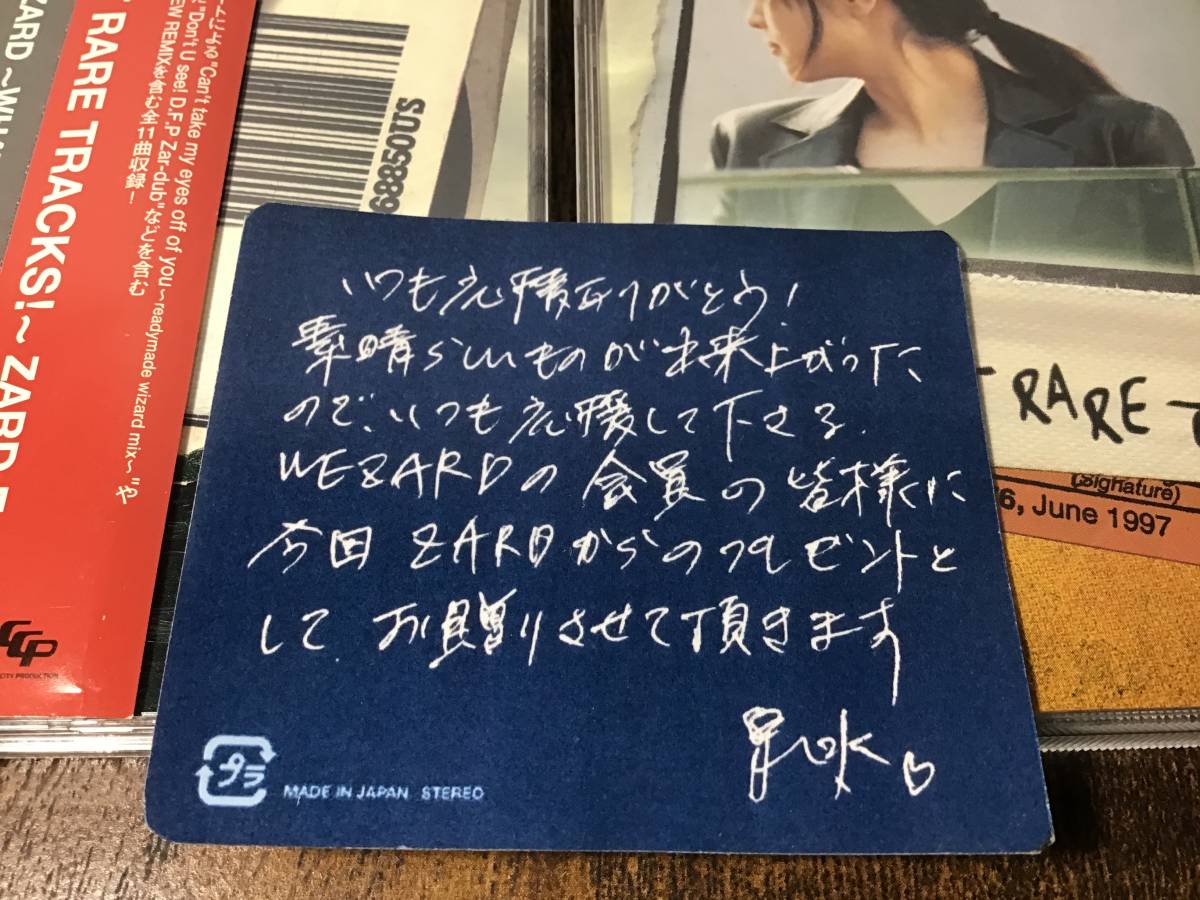 ZARD ~WHA
RARE TRACKS!~ ZARD
"Can't take my eyes off of you~readymade wizard mix~"や
"Don't U see! D.F.P Zar-dub"などを含む
EW REMIXを含む全11曲収録!
CITY PRODUCTION
68850US
RARE T
(Signature)
6, June 1997
いつも応援ありがとう!
素晴らしいものが出来上がった
ので、いつも応援して下さる
WEZARDの会員の皆様に
今回ZARDからのプレゼントと
して お贈りさせて頂きます
泉水
プラ
MADE IN JAPAN STEREO